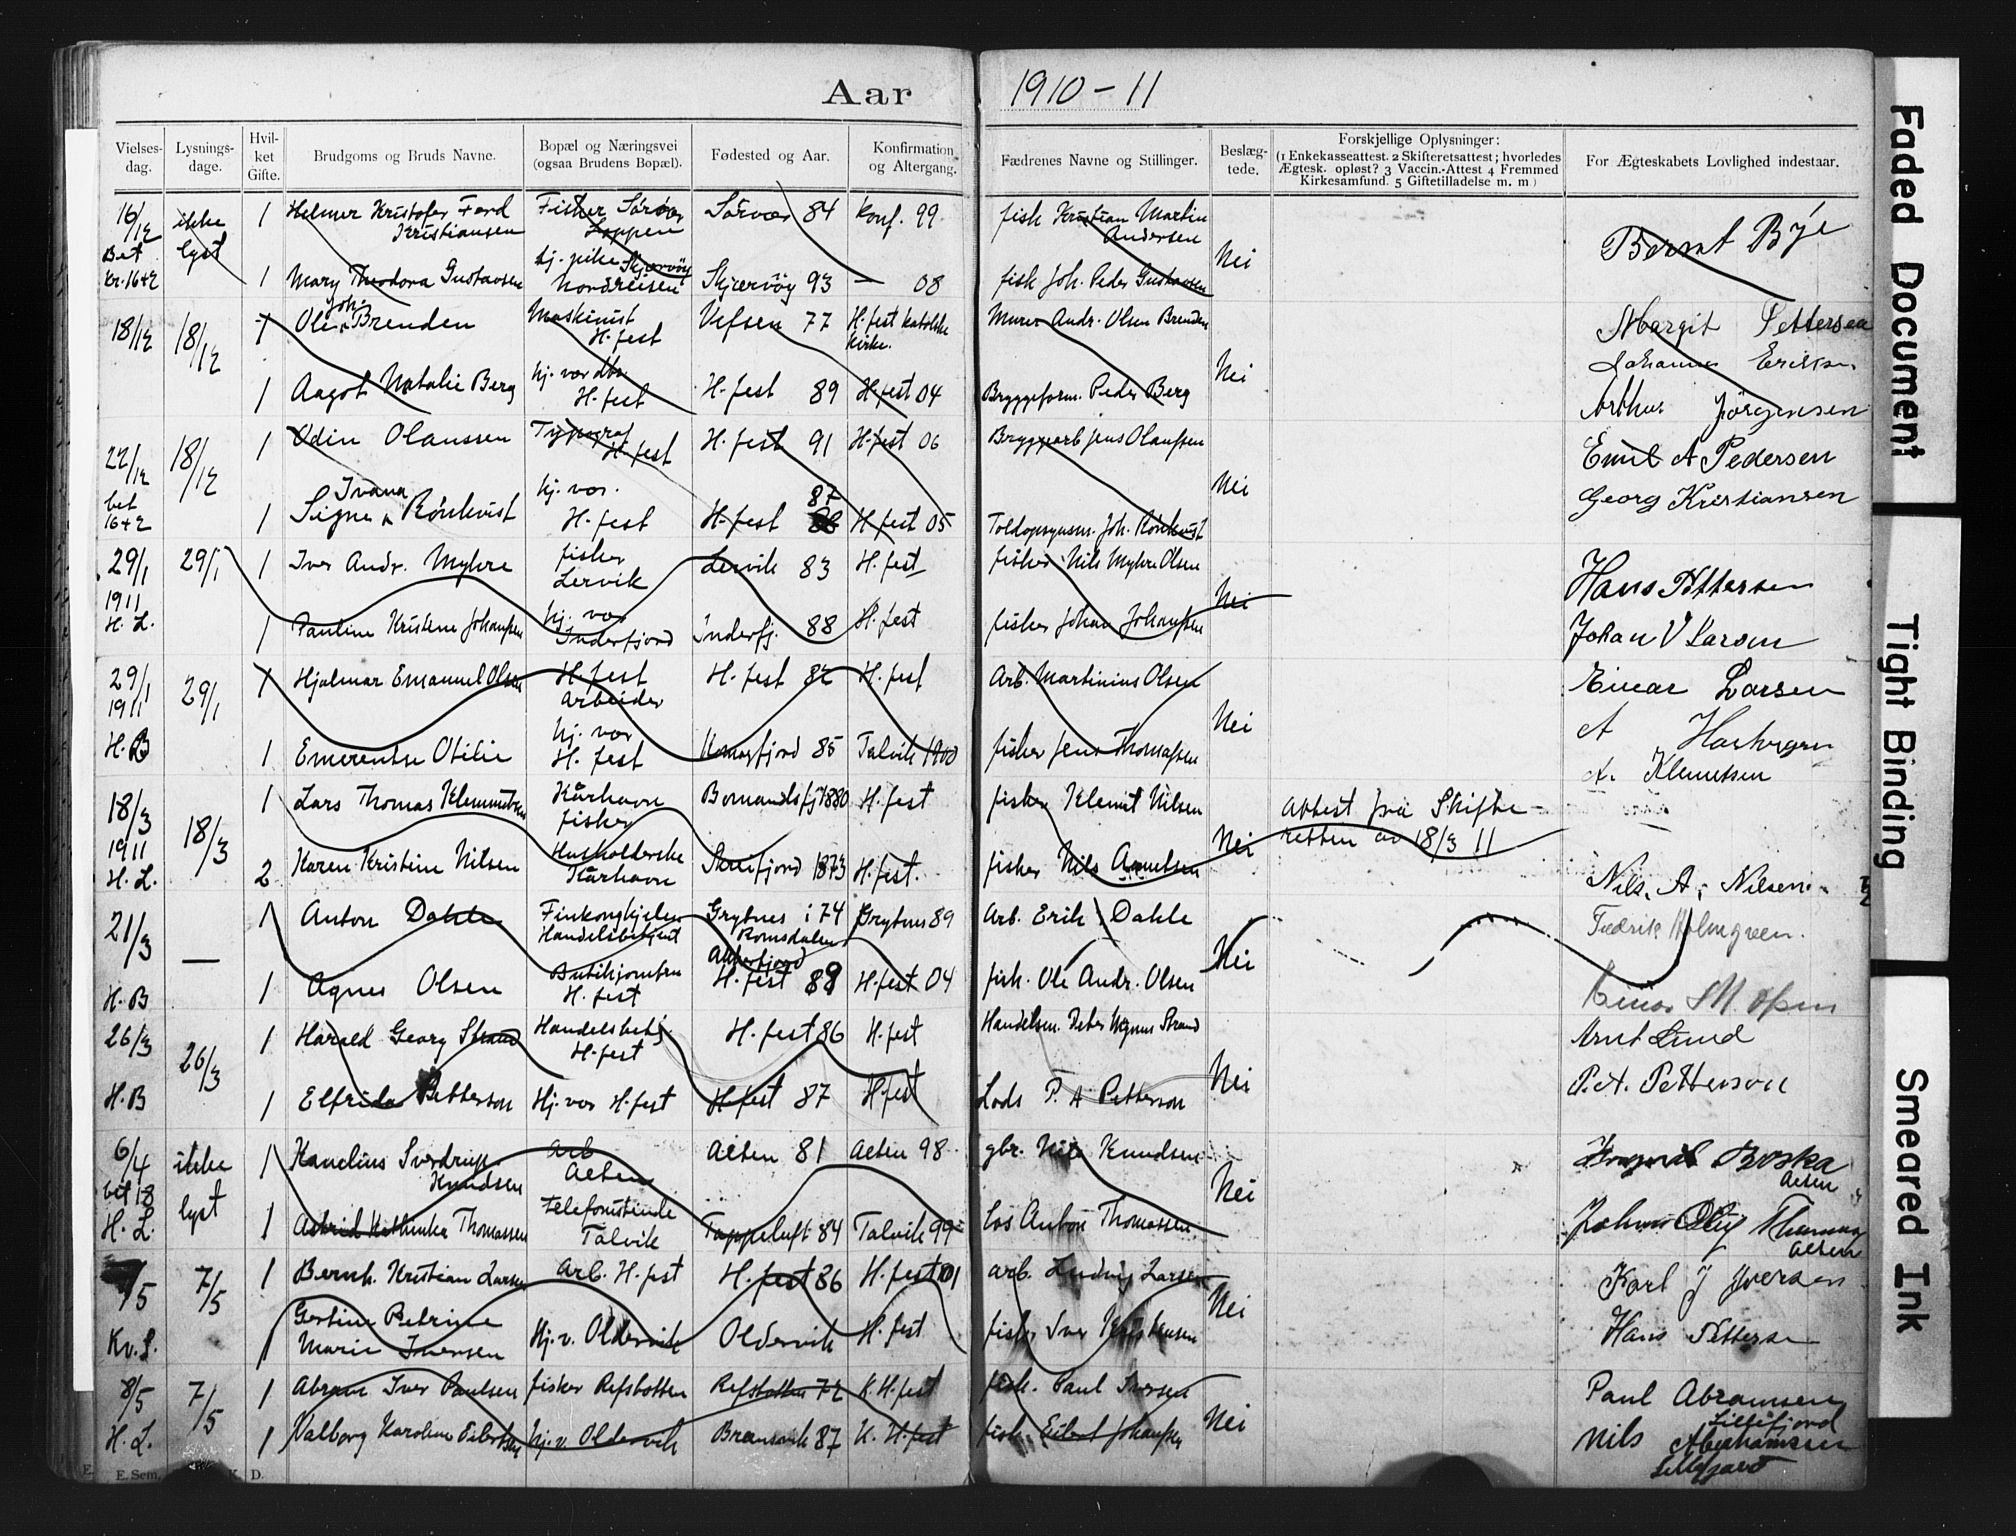 Aar 1910 - 11
Vielses-dag. Lysnings-dage. Hvil-ket Gifte. Brudgoms og Bruds Navne. Bopæl og Næringsvei (ogsaa Brudens Bopæl). Fødested og Aar. Konfirmation og Altergang. Fædrenes Navne og Stillinger. Beslæg-tede. Forskjellige Oplysninger: (1 Enkekasseattest. 2 Skifteretsattest; hvorledes Ægtesk. opløst? 3 Vaccin.-Attest 4 Fremmed Kirkesamfund. 5 Giftetilladelse m. m) For Ægteskabets Lovlighed indestaar.
16/12 ikke 1 Helmer Kristofer Ferd Fisker Sörvær Sörvær 84 Konf. 99 fisk Kristian Martin
Kristiansen Loppen Andersen Bernt Bye
Bet lyst hj. pike Skjervöy Nei
kr. 1642 1 Mary Theodora Gustavsen Nordreisen Skjærvöy 93 — 08 fisk Joh. Peder Gustavsen
18/12 18/12 1 Ole Joh. Brenden Maskinist Vefsen 77 H.fest katolske Murer Andr. Olsen Brenden Margit Pettersen
H.fest kirke. Johannes Eriksen
1 Aagot Natalie Berg hj. vær dtr. H.fest H.fest 89 H.fest 04 Bryggeform. Peder Berg Nei Arthur Jörgensen
22/12 18/12 1 Odin Olaussen Typograf H.fest H.fest 91 H.fest 06 Bryggearb Jens Olaussen Emil A Pedersen
bet Ivana hj. vær. 87 Nei Georg Kristiansen
1642 1 Signe Rönkvist H.fest H.fest H.fest 05 Toldopsynsm. Joh. Rönkvist
29/1 29/1 1 Iver Andr. Myhre fisker Lervik Lervik 83 H.fest fisker Nils Myhre Olsen Hans Pettersen
1911 Nei
H. L. 1 Pauline Kristine Johansen hj. vær Inderfjord Inderfj. 88 H.fest fisker Johan Johansen Johan V Larsen
29/1 29/1 1 Hjalmar Emanuel Olsen H.fest Arbeider H.fest 82 H.fest Arb. Martinius Olsen Einar Larsen
1911 Nei
H. B 1 Emerentse Otilie hj. vær H.fest Komagfjord 85 Talvik 1900 fisker Jens Thomassen
18/3 18/3 1 Lars Thomas Klemmetsen Kårhavn fisker 1880 H.fest fisker Klemit Nilsen attest fra Skifte- A. Klemetsen
1911 Nei retten av 18/3 11
H. L. 2 Karen Kristine Nilsen Husholderske Kårhavn 1873 H.fest. fisker Nils Nils. A. Nilsen
21/3 — 1 Anton Dahle Finkonghjelen Handelsbetjent Grytnes i Romsdalen 74 Grytnes 89 Arb. Erik Dahle Fredrik Holmgreen.
Nei
H. B 1 Agnes Olsen Butikjomfru H.fest H.fest 89 H.fest 04 fisk. Ole Andr. Olsen
26/3 26/3 1 Harald Georg Strand Handelsbetj. H.fest H.fest 86 H.fest Handelsm. Peter Strand Arnt Lund
Nei
H. B 1 Elfrida Petterson Hj. vær H.fest H.fest 87 H.fest Lods P. A Petterson P. A. Petterson
6/4 ikke 1 Kornelius Sverdrup Knudsen Arb Alten Alten 81 Alten 98 gbr. Nils Knudsen Boska Alten
bet 18 lyst Nei
H. L. 1 Astrid Kathinka Thomassen telefonistinde Talvik Tappeluft 84 Talvik 99 los Anton Thomassen Alten
/5 7/5 1 Bernh. Kristian Larsen Arb. H.fest H.fest 86 H.fest 01 arb. Ludvig Larsen Karl J Iversen
Gertine Petrine Nei
Kv. S. 1 Marie Iversen Hj. v. Oldervik Oldervik H.fest fisker Iver Hans Petterse
8/5 7/5 1 Abram Iver Paulsen fisker Refsbotten Refsbotten 72 K. H.fest fisk. Paul Iversen Paul Abramsen Lillefjord
H. L. 1 Valborg Karoline Eilertsen hj. v. Oldervik 87 K. H.fest fisk. Eilert Johansen Nei Nils Abrahamsen Lillefjord
E. Sem. K. D.
Faded Document
Tight Binding
Smeared Ink